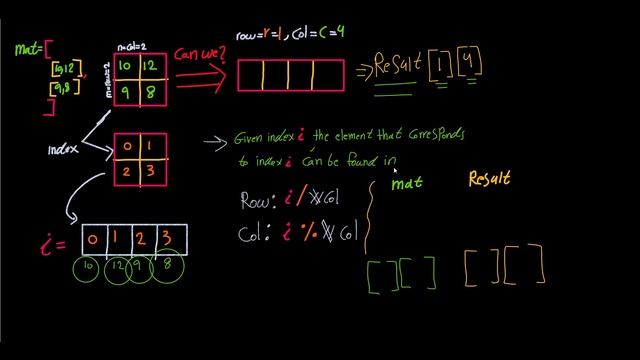 mat=[
[10,12],
[9,8]
]
n=col=2
m=row=2
10 12
9 8
Can we?
row=r=1, Col=C=4
=> Result [1][4]
Index
0 1
2 3
→ Given index i the element that corresponds
to index i Can be found in
mat Result
Row: i / Col
Col: i % Col
i= 0 1 2 3
10 12 9 8
[ ] [ ] [ ] [ ]